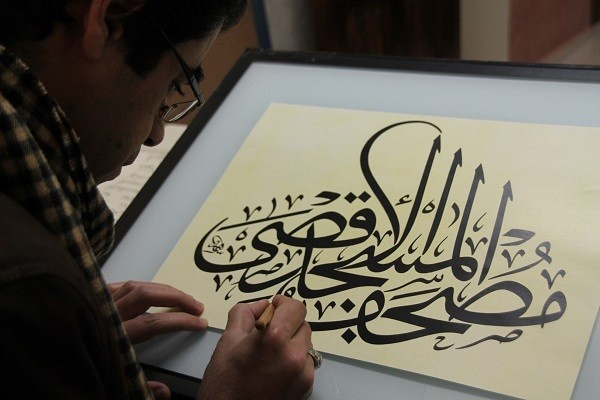 مصحف المسجد الأقصى